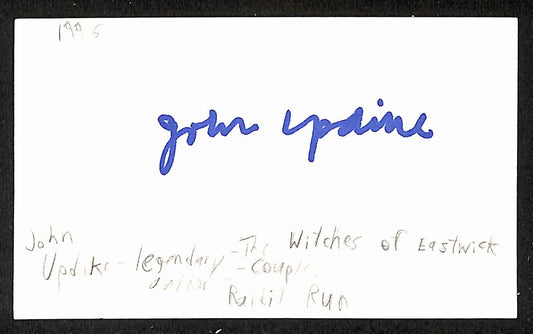 1996
John Updike
John
Updike - legendary - The Witches of Eastwick
- Couples
Rabbit Run